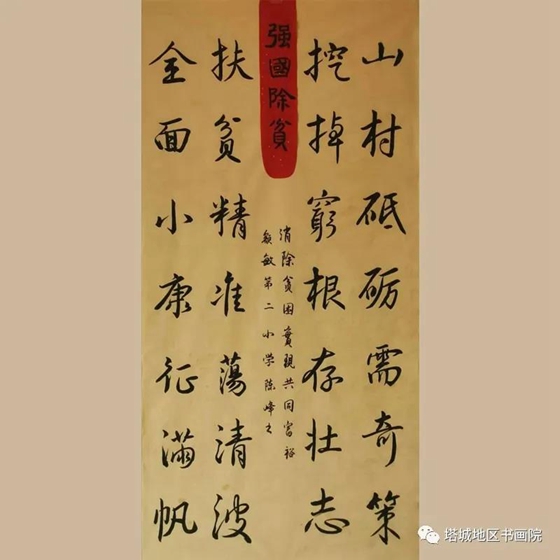 山村砥砺需奇策
挖掉窮根存壮志
强國除貧
消除貧困實現共同富裕
額敏第二小学陈峰
扶貧精准蕩清波
全面小康征滿帆
塔城地区书画院